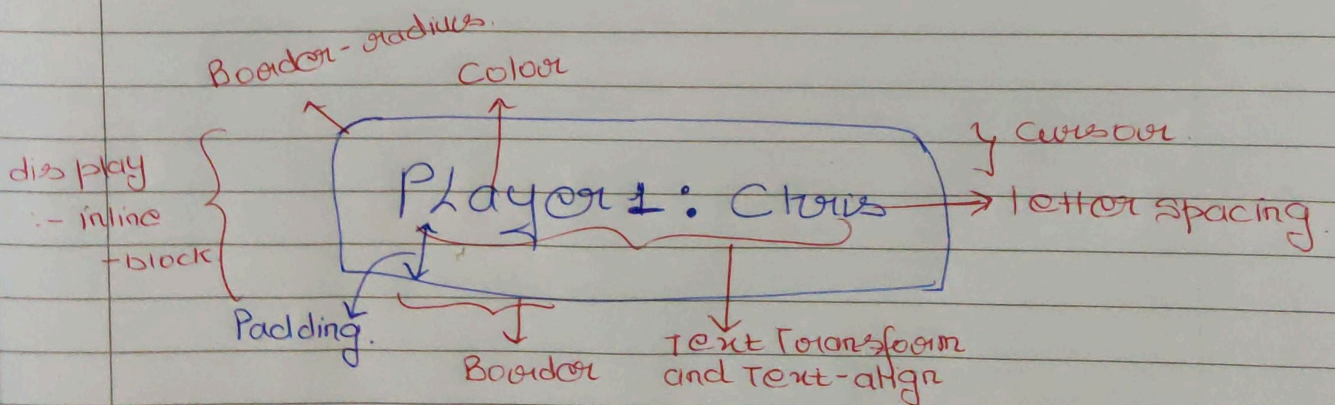 Boarder-radius.
Colour
cursour.
display
:- inline
-block
PLayer1: Chris
letter spacing.
Padding.
Boarder
Text Transform
and Text-align